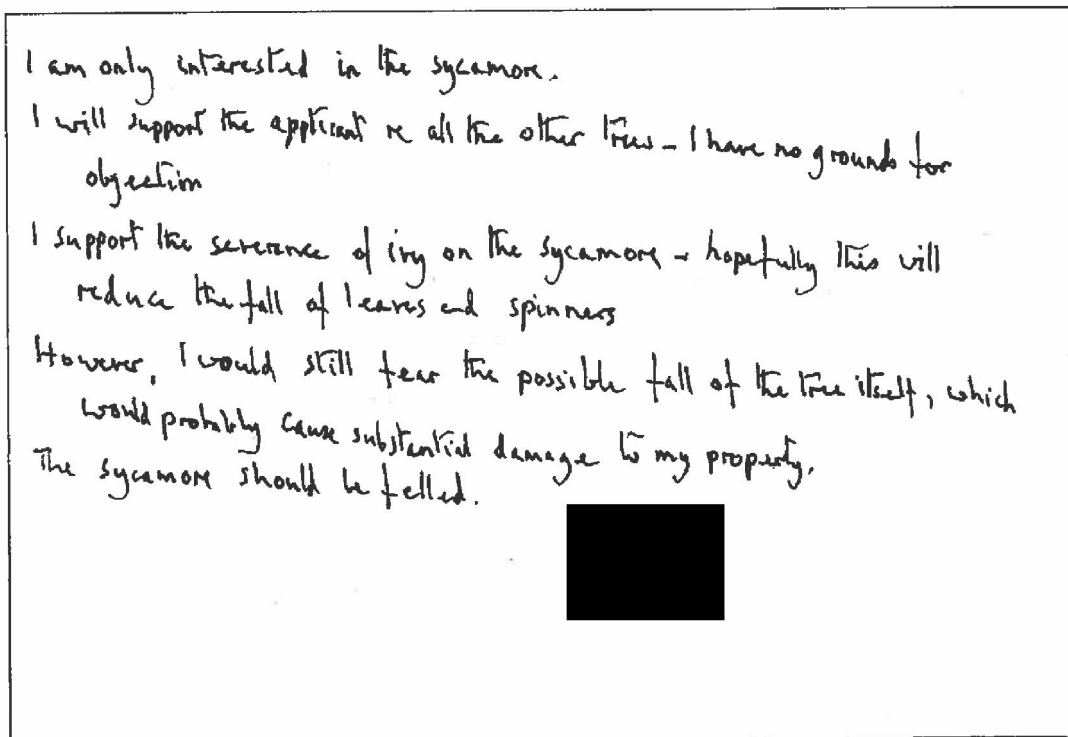 I am only interested in the sycamore.
I will support the applicant re all the other trees - I have no grounds for
objection
I support the severence of ivy on the sycamore - hopefully this will
reduce the fall of leaves and spinners
However, I would still fear the possible fall of the tree itself, which
would probably cause substantial damage to my property.
The sycamore should be felled.